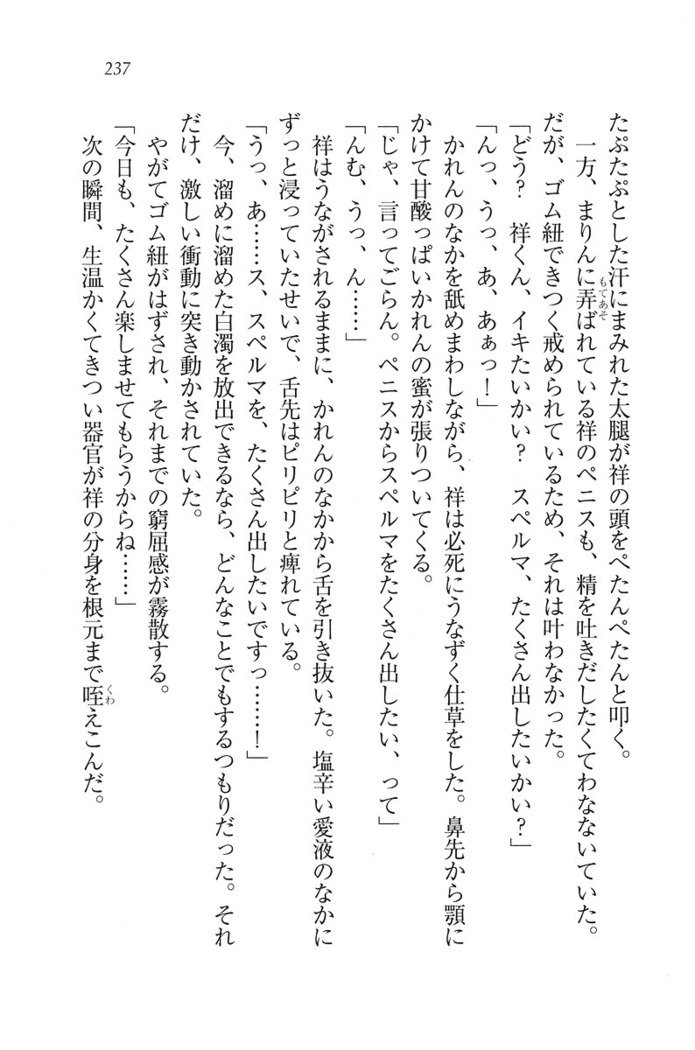 237
たぷたぷとした汗にまみれた太腿が祥の頭をぺたんぺたんと叩く。
一方、まりんに弄ばれている祥のペニスも、精を吐きだしたくてわなないていた。
もてあそ
だが、ゴム紐できつく戒められているため、それは叶わなかった。
「どう？　祥くん、イキたいかい？　スペルマ、たくさん出したいかい？」
「んっ、うっ、あ、あぁっ！」
かれんのなかを舐めまわしながら、祥は必死にうなずく仕草をした。鼻先から顎に
かけて甘酸っぱいかれんの蜜が張りついてくる。
「じゃ、言ってごらん。ペニスからスペルマをたくさん出したい、って」
「んむ、うっ、ん……」
祥はうながされるままに、かれんのなかから舌を引き抜いた。塩辛い愛液のなかに
ずっと浸っていたせいで、舌先はピリピリと痺れている。
「うっ、あ……ス、スペルマを、たくさん出したいですっ……！」
今、溜めに溜めた白濁を放出できるなら、どんなことでもするつもりだった。それ
だけ、激しい衝動に突き動かされていた。
やがてゴム紐がはずされ、それまでの窮屈感が霧散する。
「今日も、たくさん楽しませてもらうからね……」
次の瞬間、生温かくてきつい器官が祥の分身を根元まで咥えこんだ。
くわ